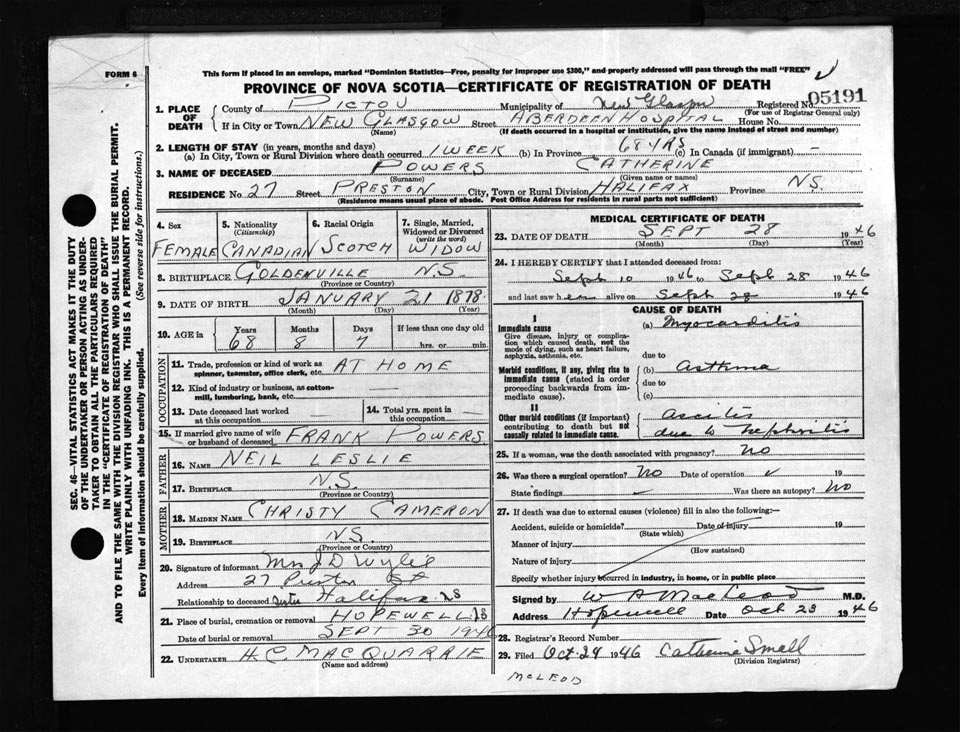 FORM 6
This form if placed in an envelope, marked "Dominion Statistics—Free, penalty for improper use $300," and properly addressed will pass through the mail "FREE"
PROVINCE OF NOVA SCOTIA—CERTIFICATE OF REGISTRATION OF DEATH
1. PLACE OF DEATH
County of PICTOU Municipality of New Glasgow Registered No. 05191
(For use of Registrar General only)
If in City or Town NEW GLASGOW Street ABERDEEN HOSPITAL House No.
(Name) (If death occurred in a hospital or institution, give the name instead of street and number)
2. LENGTH OF STAY (in years, months and days)
(a) In City, Town or Rural Division where death occurred 1 WEEK (b) In Province 68 YRS (c) In Canada (if immigrant) —
3. NAME OF DECEASED POWERS CATHERINE
(Surname) (Given name or names)
RESIDENCE No. 27 Street PRESTON City, Town or Rural Division HALIFAX Province N.S.
(Residence means usual place of abode. Post Office Address for residents in rural parts not sufficient)
SEC. 46—VITAL STATISTICS ACT MAKES IT THE DUTY
OF THE UNDERTAKER OR PERSON ACTING AS UNDER-
TAKER TO OBTAIN ALL THE PARTICULARS REQUIRED
IN THE "CERTIFICATE OF REGISTRATION OF DEATH"
AND TO FILE THE SAME WITH THE DIVISION REGISTRAR WHO SHALL ISSUE THE BURIAL PERMIT.
WRITE PLAINLY WITH UNFADING INK. THIS IS A PERMANENT RECORD.
Every item of information should be carefully supplied. (See reverse side for instructions.)
4. Sex
FEMALE
5. Nationality
(Citizenship)
CANADIAN
6. Racial Origin
SCOTCH
7. Single, Married,
Widowed or Divorced
(write the word)
WIDOW
8. BIRTHPLACE GOLDENVILLE N.S.
(Province or Country)
9. DATE OF BIRTH JANUARY 21 1878
(Month) (Day) (Year)
10. AGE in
Years Months Days If less than one day old
68 8 7 hrs. or min.
OCCUPATION
11. Trade, profession or kind of work as
spinner, teamster, office clerk, etc. AT HOME
12. Kind of industry or business, as cotton-
mill, lumbering, bank, etc. —
13. Date deceased last worked
at this occupation —
14. Total yrs. spent in
this occupation —
15. If married give name of wife
or husband of deceased FRANK POWERS
FATHER
16. NAME NEIL LESLIE
17. BIRTHPLACE N.S.
(Province or Country)
MOTHER
18. MAIDEN NAME CHRISTY CAMERON
19. BIRTHPLACE N.S.
(Province or Country)
20. Signature of informant Mrs J D Wylie
Address 27 Preston St
Relationship to deceased Sister Halifax NS
21. Place of burial, cremation or removal HOPEWELL NS
Date of burial or removal SEPT 30 1946
22. UNDERTAKER H.C. MACQUARRIE
(Name and address)
MEDICAL CERTIFICATE OF DEATH
23. DATE OF DEATH SEPT 28 1946
(Month) (Day) (Year)
24. I HEREBY CERTIFY that I attended deceased from:
Sept 10 1946 to Sept 28 1946
and last saw her alive on Sept 28 1946
CAUSE OF DEATH
I
Immediate cause
Give disease, injury or complica-
tion which caused death, not the
mode of dying, such as heart failure,
asphyxia, asthenia, etc.
(a) Myocarditis
due to
Morbid conditions, if any, giving rise to
immediate cause (stated in order
proceeding backwards from im-
mediate cause).
(b) Asthma
due to
(c)
II
Other morbid conditions (if important)
contributing to death but not
causally related to immediate cause.
Ascitis
due to Nephritis
25. If a woman, was the death associated with pregnancy? No
26. Was there a surgical operation? No Date of operation ✓ 19
State findings ✓ Was there an autopsy? No
27. If death was due to external causes (violence) fill in also the following:—
Accident, suicide or homicide? Date of injury 19
(State which)
Manner of injury
(How sustained)
Nature of injury
Specify whether injury occurred in industry, in home, or in public place
Signed by W A MacLeod M.D.
Address Hopewell Date Oct 23 1946
28. Registrar's Record Number
29. Filed Oct. 24 1946 Catherine Small
(Division Registrar)
McLEOD